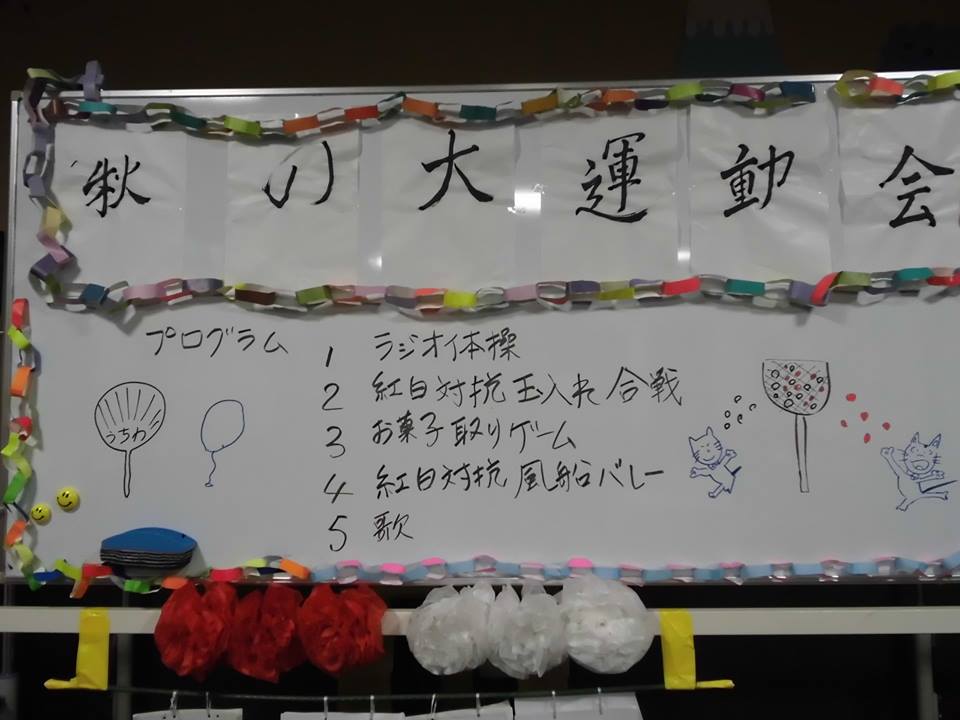 秋の大運動会
プログラム
1 ラジオ体操
2 紅白対抗玉入れ合戦
3 お菓子取りゲーム
4 紅白対抗風船バレー
5 歌
うちわ